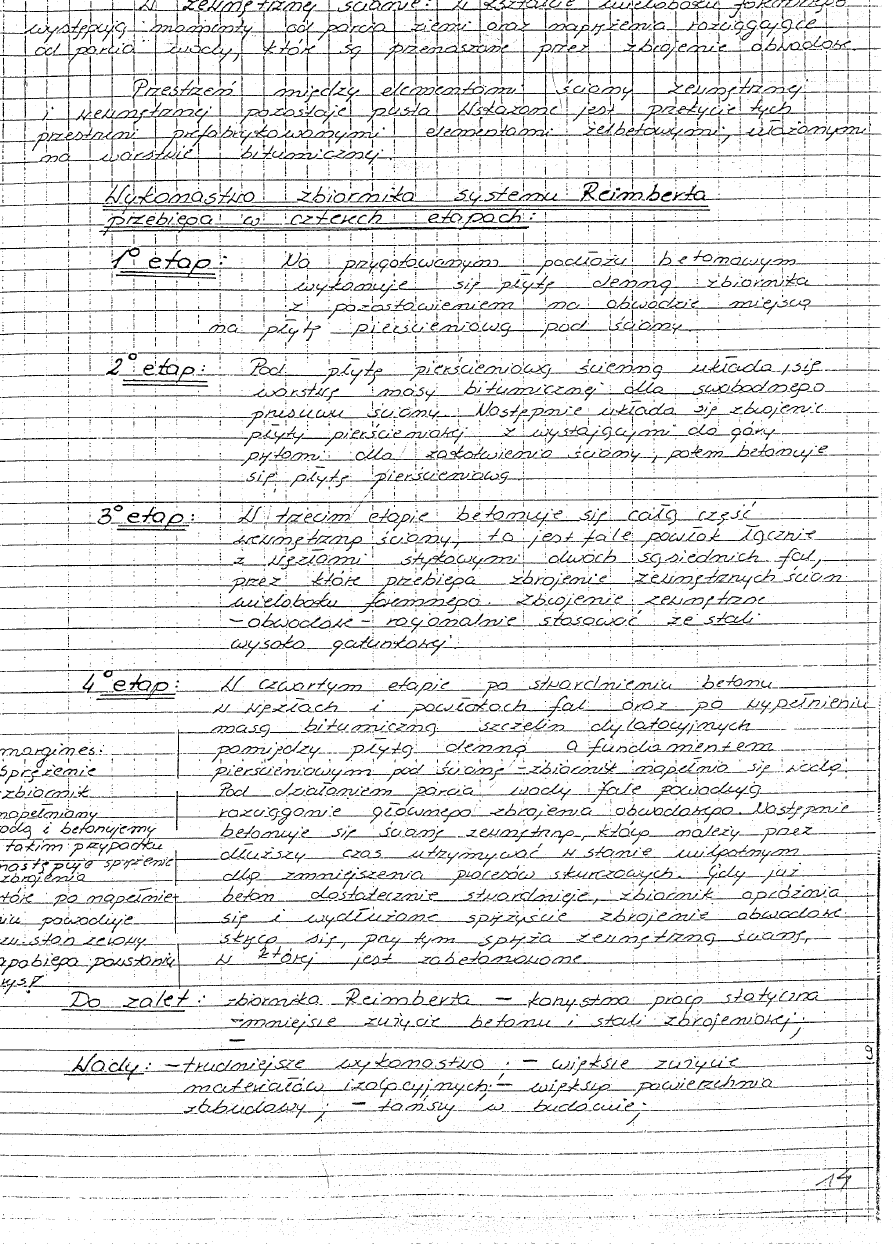 W zewnętrznej ścianie: w kształcie wieloboku foremnego
występują momenty od parcia ziemi oraz naprężenia rozciągające
od parcia wody, które są przenoszone przez zbrojenie obwodowe.
Przestrzeń między elementami ściany zewnętrznej
i wewnętrznej pozostaje pusta. Wskazane jest przykrycie tych
przestrzeni prefabrykowanymi elementami żelbetowymi, ułożonymi
na warstwie bitumicznej.
Wykonastwo zbiornika systemu Reimberta
przebiega w czterech etapach:
1° etap: Na przygotowanym podłożu betonowym
wykonuje się płytę denną zbiornika
z pozostawieniem na obwodzie miejsca
na płytę pierścieniową pod ściany.
2° etap: Pod płytę pierścieniową ścienną układa się
warstwę masy bitumicznej dla swobodnego
przesuwu ściany. Następnie układa się zbrojenie
płyty pierścieniowej z wystającymi do góry
prętami dla zakotwienia ściany, potem betonuje
się płytę pierścieniową.
3° etap: W trzecim etapie betonuje się całą część
wewnętrzną ściany, to jest fale powłok łącznie
z węzłami stykowymi dwóch sąsiednich fal,
przez które przebiega zbrojenie zewnętrznych ścian
wieloboku foremnego. Zbrojenie zewnętrzne
- obwodowe - racjonalnie stosować ze stali
wysoko gatunkowej.
4° etap: W czwartym etapie po stwardnieniu betonu
w węzłach i powłokach fal oraz po wypełnieniu
masą bitumiczną szczelin dylatacyjnych
pomiędzy płytą denną a fundamentem
pierścieniowym pod ścianę - zbiornik napełnia się wodą.
Pod działaniem parcia wody fale powodują
rozciąganie głównego zbrojenia obwodowego. Następnie
betonuje się ścianę zewnętrzną, którą należy przez
dłuższy czas utrzymywać w stanie wilgotnym
dla zmniejszenia procesów skurczowych. Gdy już
beton dostatecznie stwardnieje, zbiornik opróżnia
się i wydłużone sprężyście zbrojenie obwodowe
skraca się, przy tym spręża zewnętrzną ścianę,
w której jest zabetonowane.
margines:
sprężenie
zbiornik
napełniany
odą i betonujemy
takim przypadku
następuje sprężenie
zbrojenia
tóre po napełnie-
niu powoduje
stan zerowy
apobiega powstaniu
rys!
Do zalet: zbiornika Reimberta - korzystna praca statyczna
- mniejsze zużycie betonu i stali zbrojeniowej;
-
Wady: - trudniejsze wykonastwo; - większe zużycie
materiałów izolacyjnych; - większa powierzchnia
zabudowy; - tańszy w budowie;
9
14